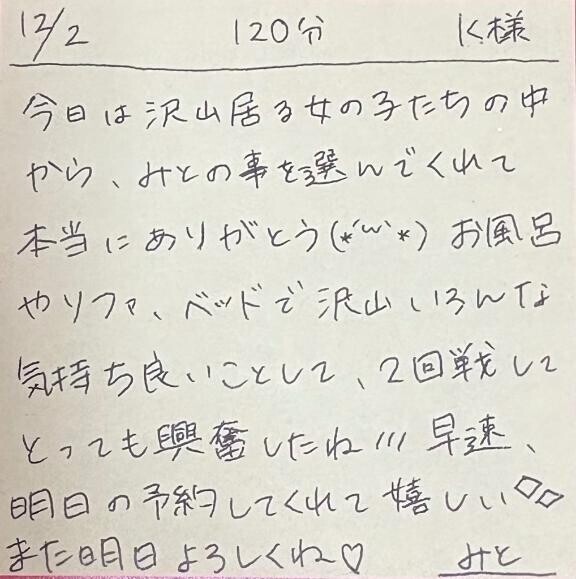 12/2 120分 K様
今日は沢山居る女の子たちの中
から、みとの事を選んでくれて
本当にありがとう(*´ω`*) お風呂
やソファ、ベッドで沢山いろんな
気持ち良いことして、2回戦して
とっても興奮したね/// 早速、
明日の予約してくれて嬉しい
また明日よろしくね♡ みと